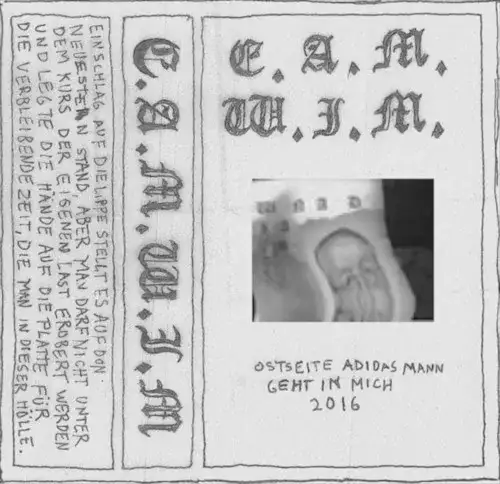 EINSCHLAG AUF DIE LIPPE STELLT ES AUF DON
NEUESTEN STAND, ABER MAN DARF NICHT UNTER
DEM KURS DER EIGENEN LAST EROBERT WERDEN
UND LEGTE DIE HÄNDE AUF DIE PLATTE FÜR
DIE VERBLEIBENDE ZEIT, DIE MAN IN DIESER HÖLLE.
E.A.M.W.I.M
E. A. M.
W. I. M.
OSTSEITE ADIDAS MANN
GEHT IN MICH
2016